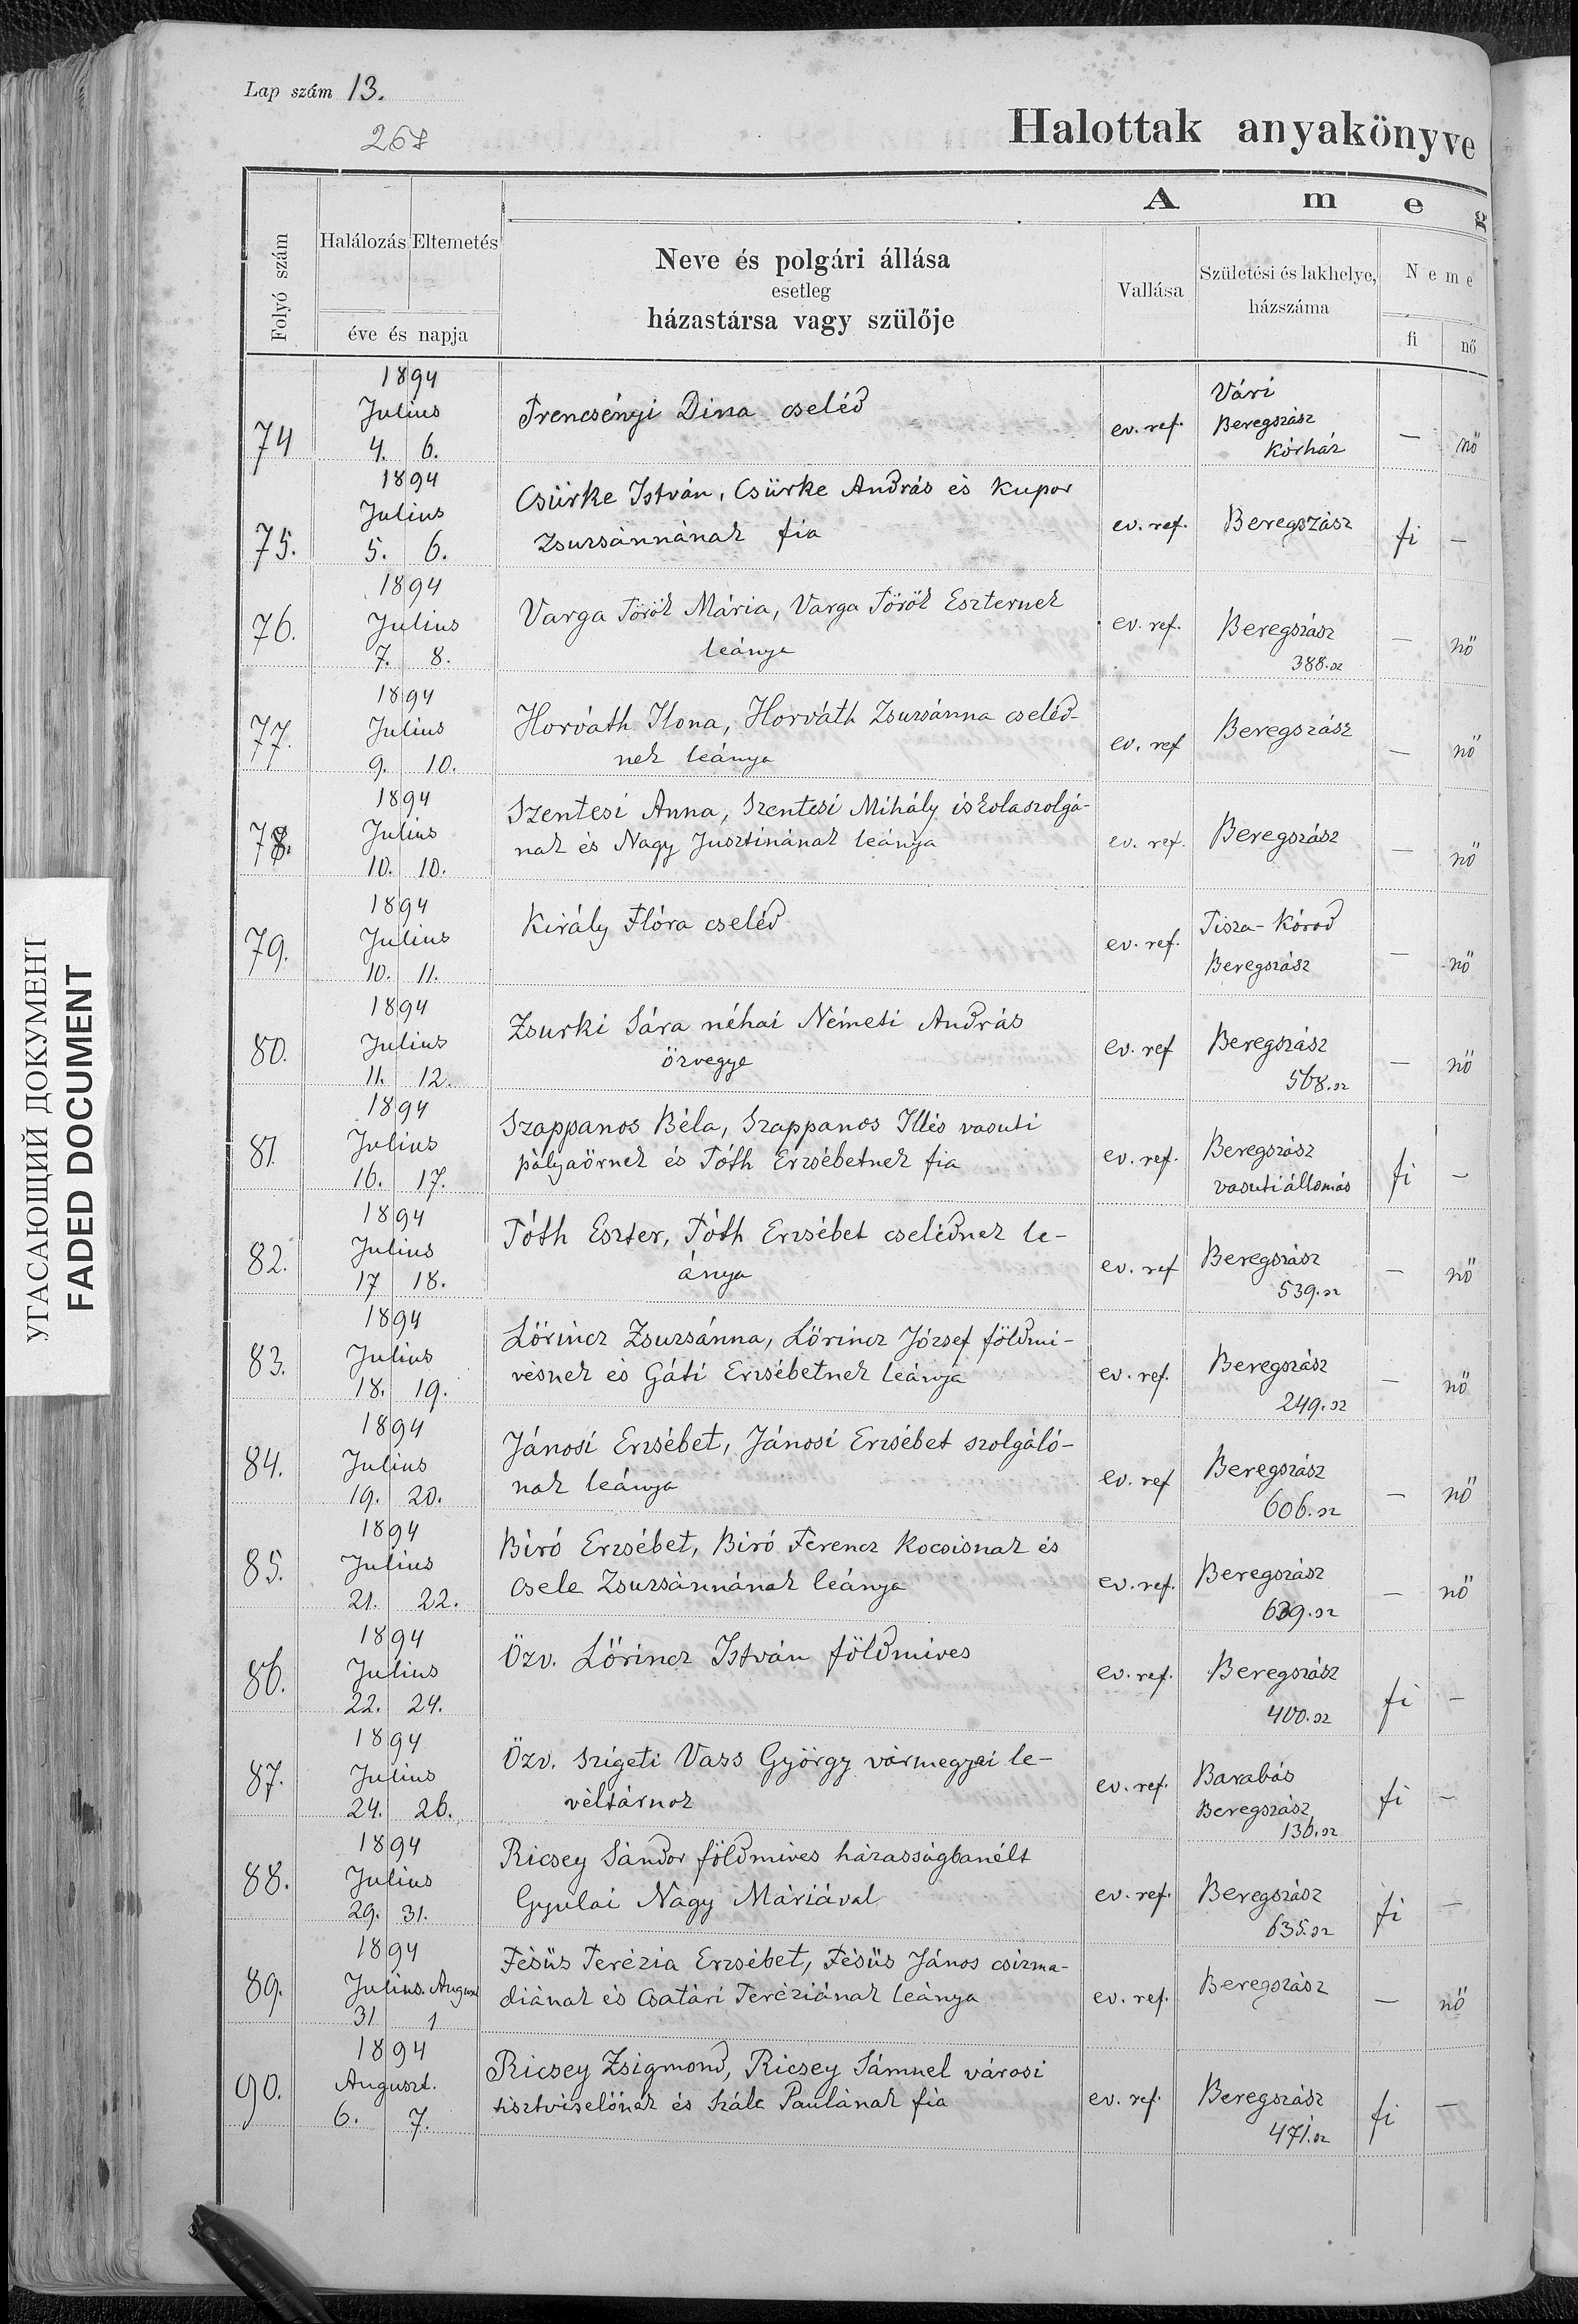 Lap szám 13.
267
Halottak anyakönyve
A m e g
Folyó szám
Halálozás Eltemetés
éve és napja
Neve és polgári állása
esetleg
házastársa vagy szülője
Vallása
Születési és lakhelye,
házszáma
Neme
fi nő
1894
74 Julius 4. 6. Trencsényi Dina cseléd ev. ref. Vári
Beregszász
Kórház — nő
1894
75. Julius 5. 6. Csürke István, Csürke András és Kupor
Zsuzsánnának fia ev. ref. Beregszász fi —
1894
76. Julius 7. 8. Varga Török Mária, Varga Török Eszternek
leánya ev. ref. Beregszász
388. sz — nő
1894
77. Julius 9. 10. Horváth Ilona, Horváth Zsuzsánna cseléd-
nek leánya ev. ref Beregszász — nő
1894
78. Julius 10. 10. Szentesi Anna, Szentesi Mihály iskolaszolgá-
nak és Nagy Jusztinának leánya ev. ref. Beregszász — nő
1894
79. Julius 10. 11. Király Flóra cseléd ev. ref. Tisza-Kóród
Beregszász — nő
1894
80. Julius 11. 12. Zsurki Sára néhai Németi András
özvegye ev. ref Beregszász
568. sz — nő
1894
81. Julius 16. 17. Szappanos Béla, Szappanos Illés vasuti
pályaőrnek és Tóth Erzsébetnek fia ev. ref. Beregszász
vasuti állomás fi —
1894
82. Julius 17 18. Tóth Eszter, Tóth Erzsébet cselédnek le-
ánya ev. ref Beregszász
539. sz — nő
1894
83. Julius 18. 19. Lőrincz Zsuzsánna, Lőrincz József földmi-
vesnek és Gáti Erzsébetnek leánya ev. ref. Beregszász
249. sz — nő
1894
84. Julius 19. 20. Jánosi Erzsébet, Jánosi Erzsébet szolgáló-
nak leánya ev. ref Beregszász
606. sz — nő
1894
85. Julius 21. 22. Biró Erzsébet, Biró Ferencz Kocsisnak és
Csele Zsuzsánnának leánya ev. ref. Beregszász
639. sz — nő
1894
86. Julius 22. 24. Özv. Lőrincz István földmives ev. ref. Beregszász
400. sz fi —
1894
87. Julius 24. 26. Özv. Szigeti Vass György vármegyei le-
véltárnok ev. ref. Barabás
Beregszász
136. sz fi —
1894
88. Julius 29. 31. Ricsey Sándor földmives házasságbanélt
Gyulai Nagy Máriával ev. ref. Beregszász
635. sz fi —
1894
89. Julius. 31 1 Fésüs Terézia Erzsébet, Fésüs János csizma-
diának és Csatári Teréziának leánya ev. ref. Beregszász — nő
1894
90. Auguszt. 6. 7. Ricsey Zsigmond, Ricsey Sámuel városi
tisztviselőnek és Szále Paulának fia ev. ref. Beregszász
471. sz fi —
УГАСАЮЩИЙ ДОКУМЕНТ
FADED DOCUMENT